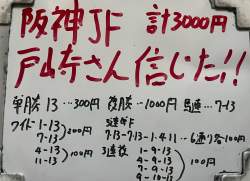 阪神JF 計3000円
戸崎さん信じた!!
単勝 13…300円 複勝…1000円 馬連…7-13
ワイド…1-13
7-13
200円
4-13
11-13
100円
3連単F
7・13→7・13→1・4・11…6通り各100円
3連複
1-9-13
4-9-13
7-9-13
9-10-13
100円